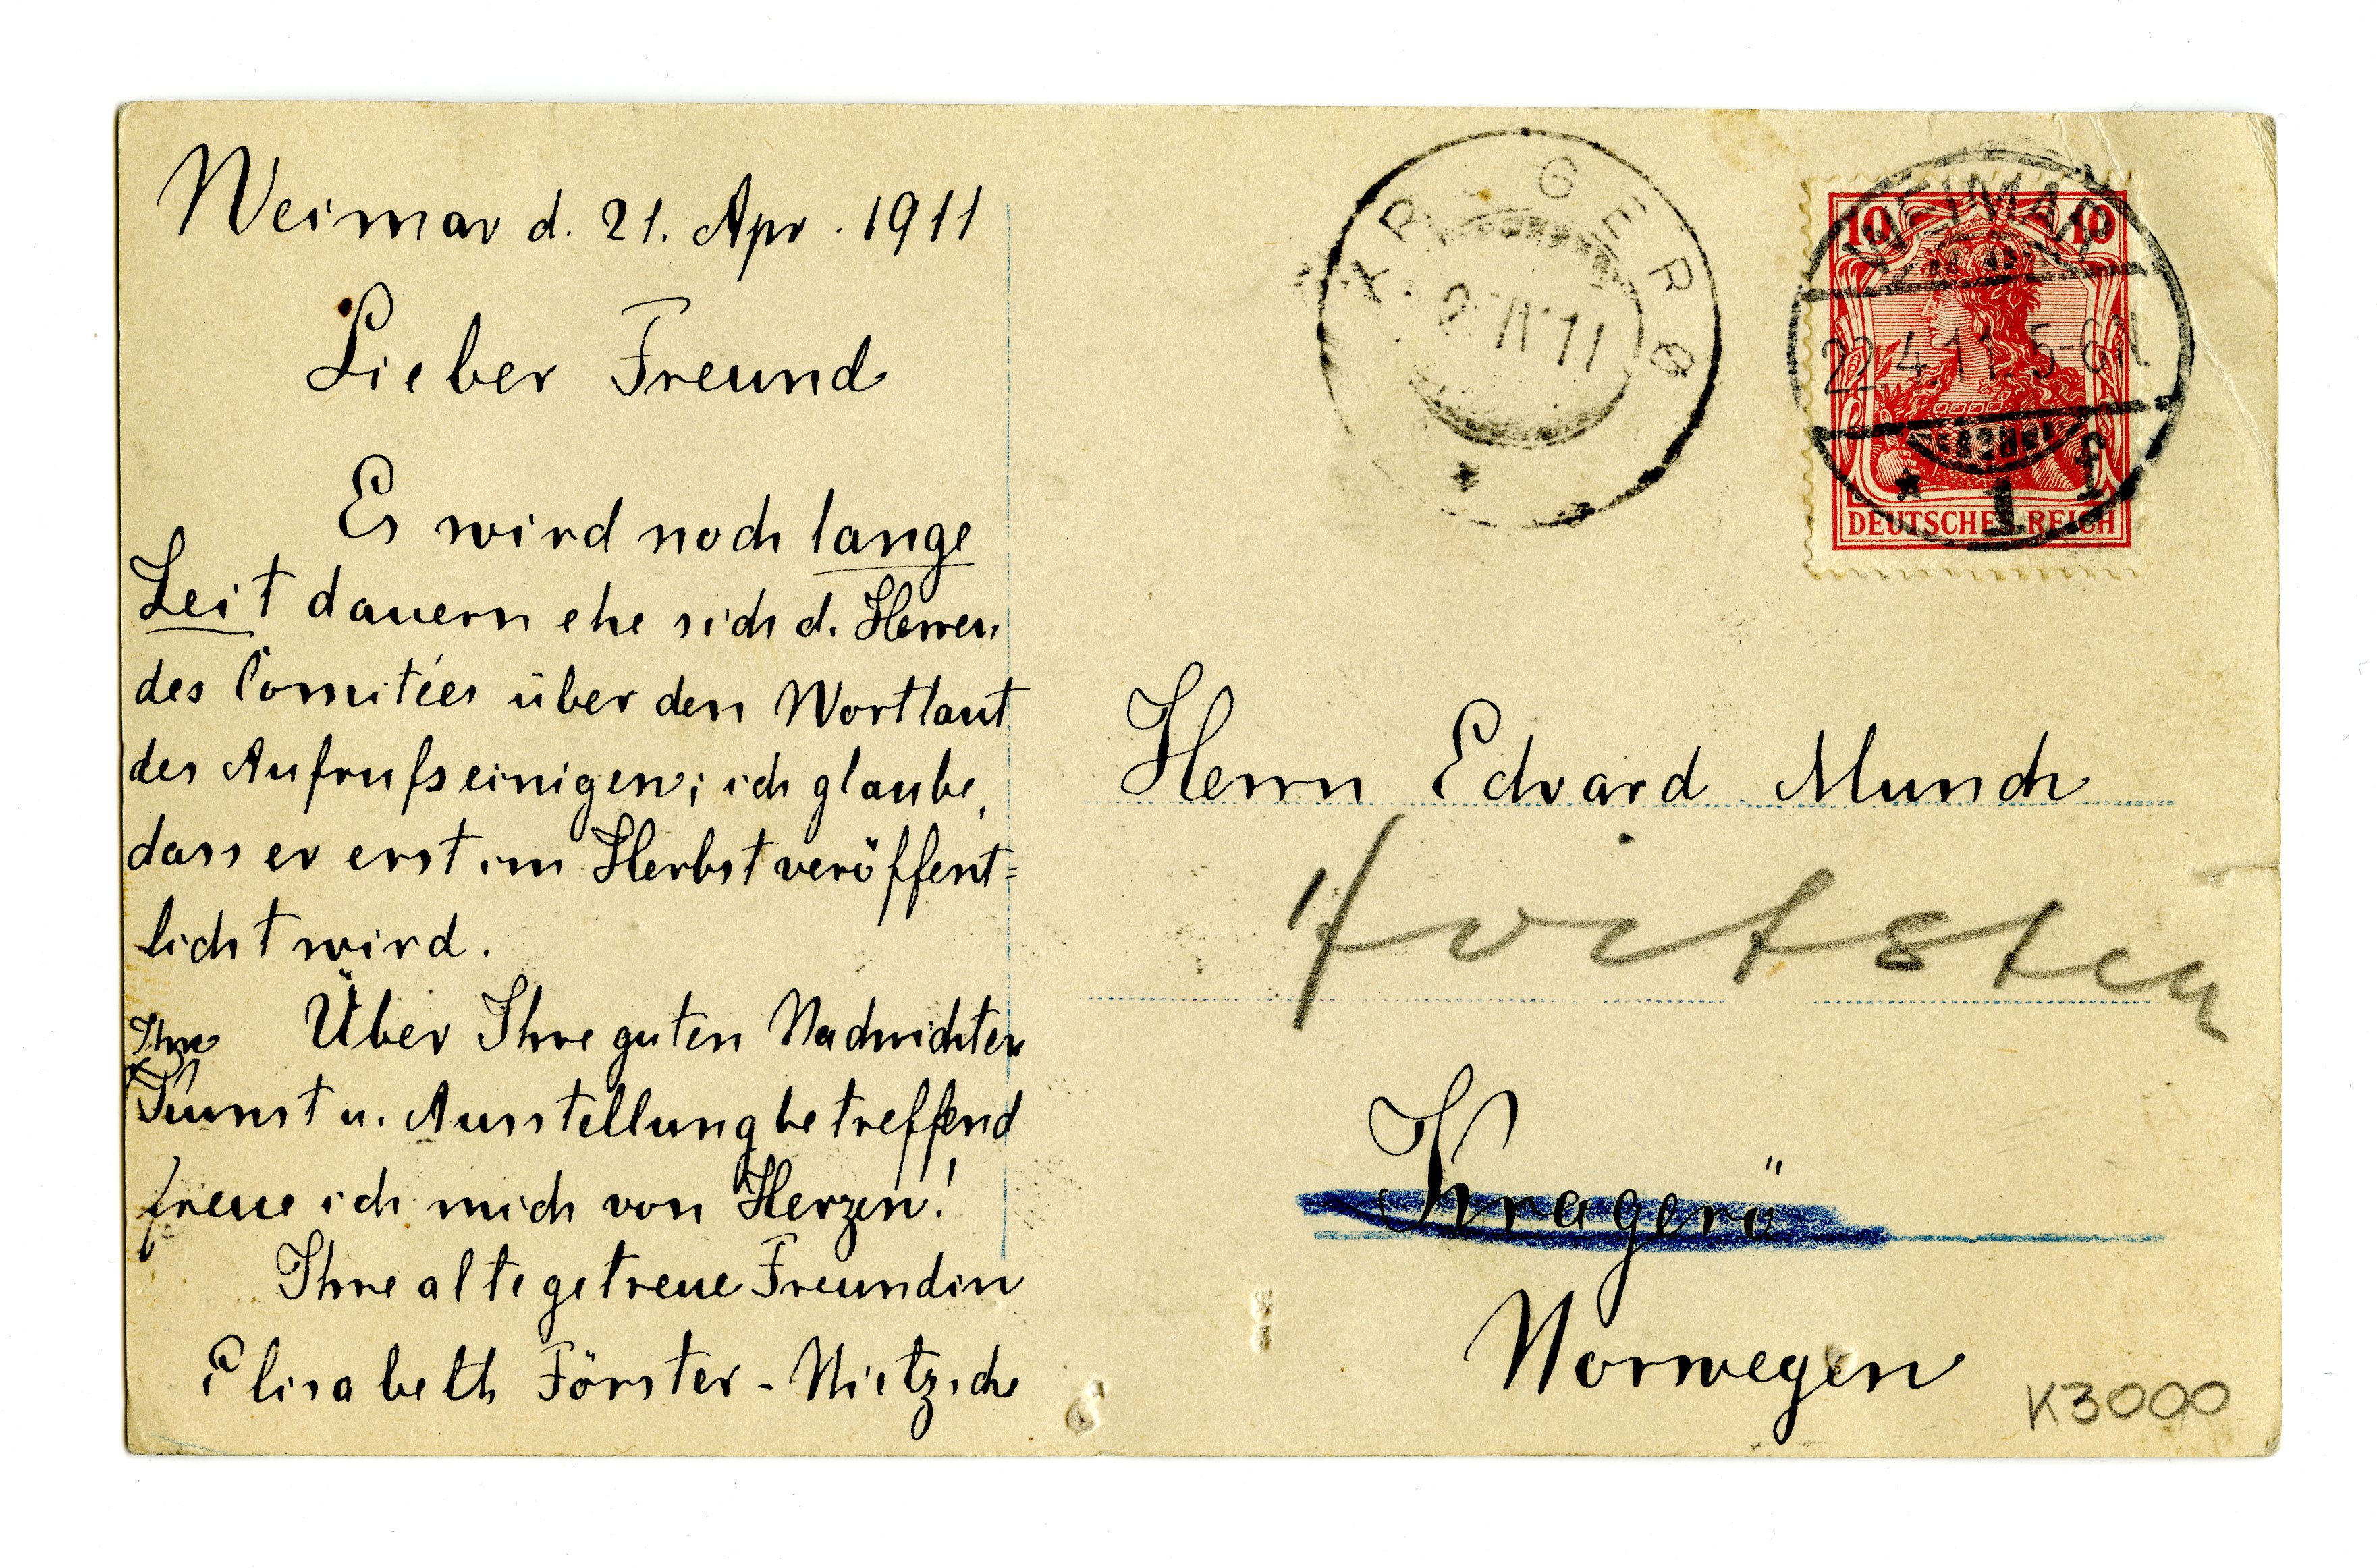 Weimar d. 21. Apr. 1911
Lieber Freund
Es wird noch lange
Zeit dauern ehe sich d. Herren
des Comitées über den Wortlaut
des Aufrufs einigen; ich glaube,
dass er erst im Herbst veröffent=
licht wird.
Über Ihre guten Nachrichten
Ihre
Kunst u. Ausstellung betreffend
freue ich mich von Herzen!
Ihre alte getreue Freundin
Elisabeth Förster-Nietzsche
KR GERØ
IV 11
10 10
WEIMAR
22.4.11. 5-6N.
* 1 f
DEUTSCHES REICH
Herrn Edvard Munch
Hvitsten
Kragerö
Norwegen
K3000